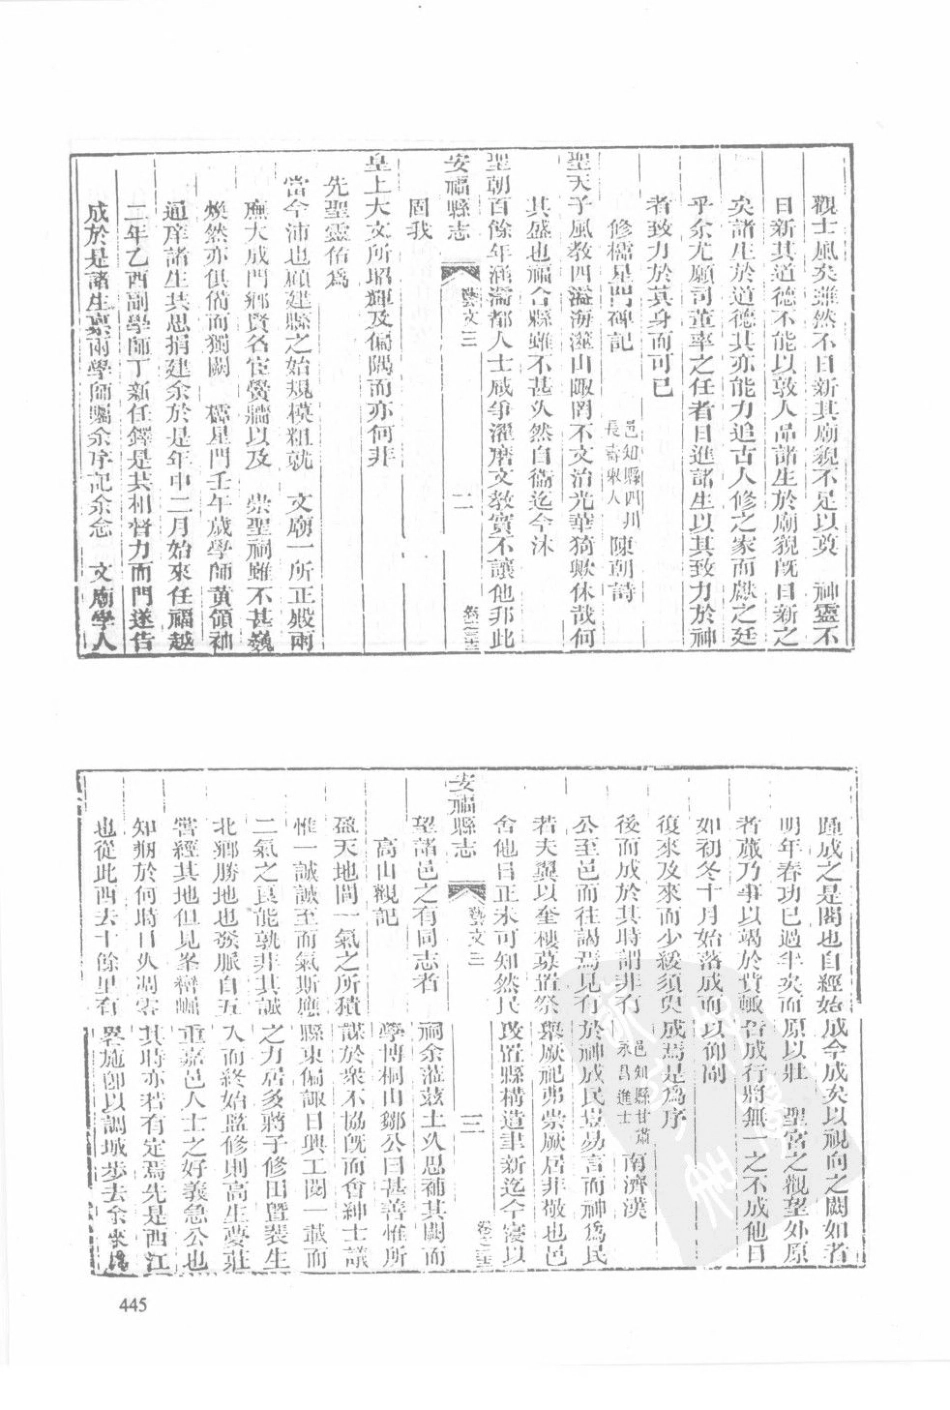 觀士風矣雖然不日新其廟貌不足以奠　神靈不
日新其道德不能以敦人品諸生於廟貌旣日新之
矣諸生於道德其亦能力追古人修之家而獻之廷
乎余尤願司董率之任者日進諸生以其致力於神
者致力於其身而可已
修櫺星門碑記　邑知縣四川長壽舉人　陳朝詩
聖天子風教四溢海澨山陬罔不文治光華猗歟休哉何
其盛也福合縣雖不甚久然自衞迄今沐
聖朝百餘年涵濡都人士咸爭濯磨文教實不讓他邦此
安福縣志　藝文三　二
固我
皇上大文所昭輝及偏隅而亦何非
先聖靈佑爲
當今沛也顧建縣之始規模粗就　文廟一所正殿兩
廡大成門鄉賢名宦黌牆以及　崇聖祠雖不甚巍
煥然亦俱備而獨闕　櫺星門壬午歲學師黃領袖
通庠諸生共思捐建余於是年申二月始來任福越
二年乙酉副學師丁新任鐸是共相督力而門遂告
成於是諸生稟兩學師囑余序記余念　文廟學人
踵成之是閣也自經始成今成矣以視向之闕如者
明年春功已過半矣而原以壯　聖宮之觀望外原
者蕆乃事以竭於費輒告成行將無一之不成他日
如初冬十月始落成而以仰副
復來及來而少緩須臾成焉是爲序
後而成於其時謂非有　邑知縣甘肅永昌進士　南濟漢
公至邑而往謁焉見有於神成民豈易言而神爲民
若夫翼以奎樓募置祭舉厥祀弗崇厥居非敬也邑
舍他日正未可知然民改置縣構造聿新迄今寖以
安福縣志　藝文三　三
望諸邑之有同志者　祠余蒞茲土久思補其闕而
高山觀記　學博桐山鄒公曰甚善惟所
盈天地間一氣之所積謀於衆不協旣而會紳士議
惟一誠誠至而氣斯應縣東偏諏日興工閱一載而
二氣之良能孰非其誠之力居多蔣子修田曁裴生
北鄉勝地也發脈自五人而終始監修則高生夢莊
營經其地但見峯巒崛重嘉邑人士之好義急公也
知創於何時日久凋零其時亦若有定焉先是西江
也從此西去十餘里有畧施卽以謂城步去余來
445